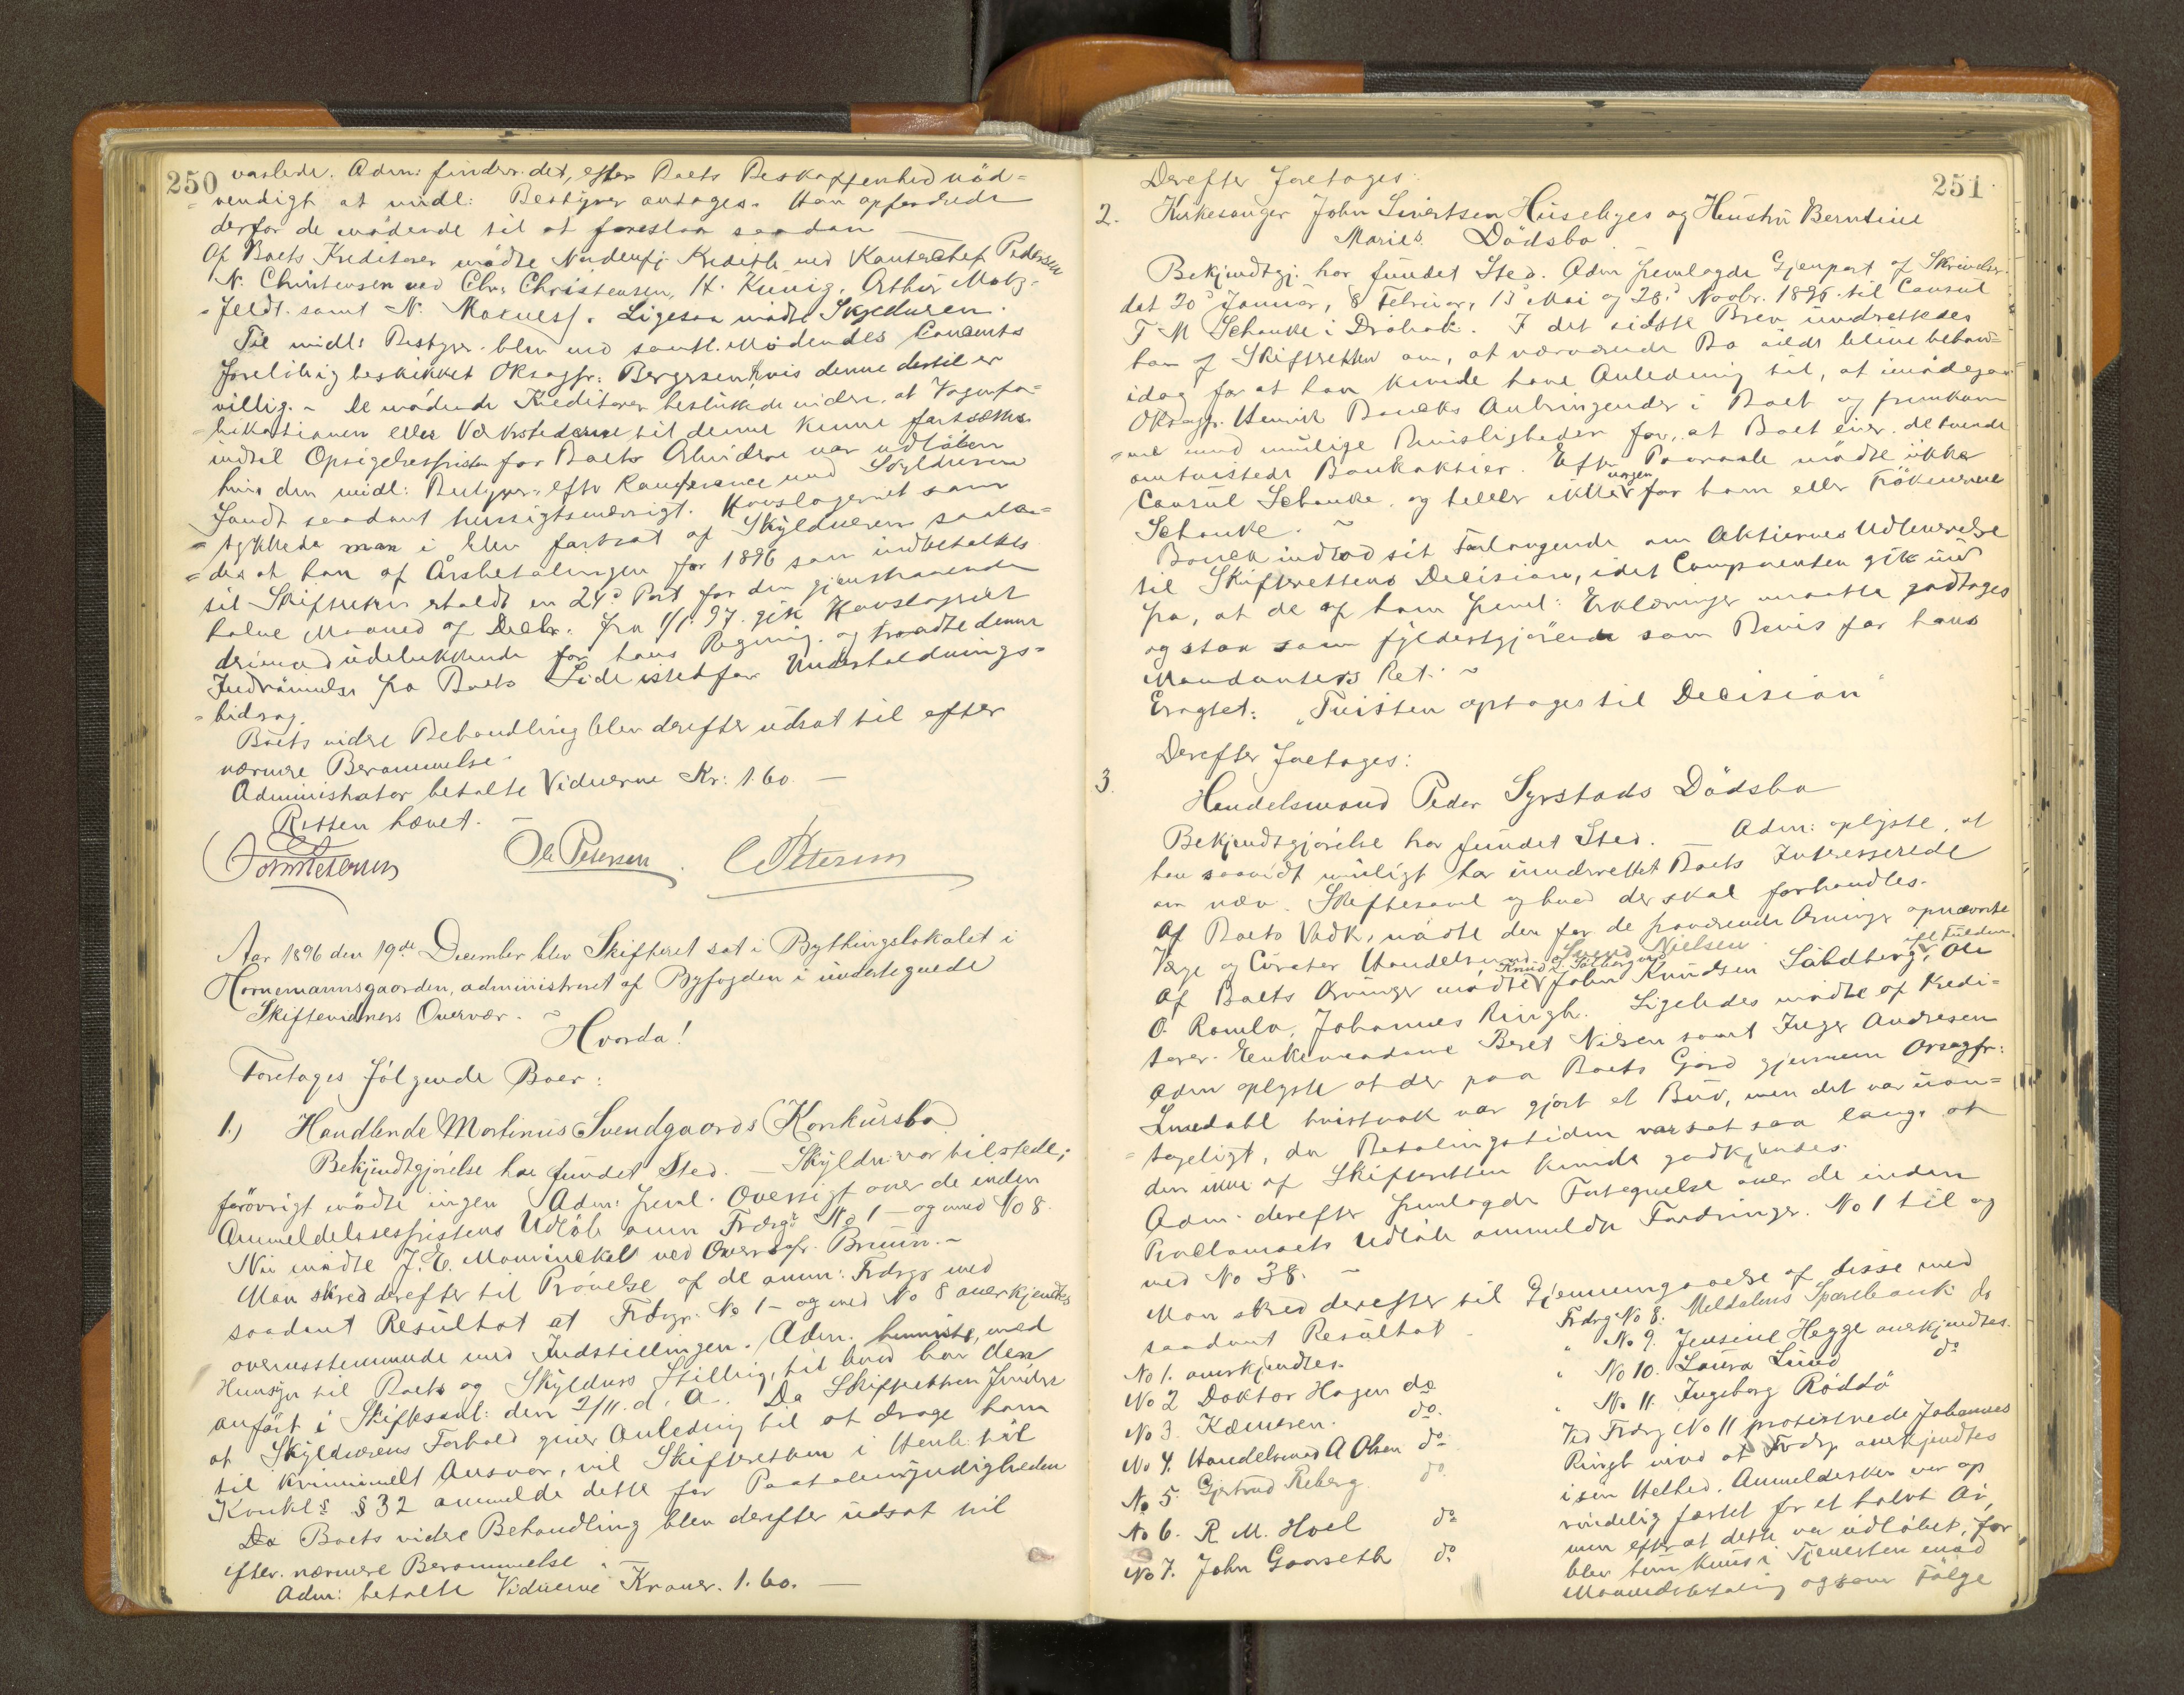 250
varslede. Adm: finder det, efter Boets Beskaffenhed nöd=
=vendigt at midl: Bestyrer antages. Han opfordrede
derfor de mödende til at foreslaa saadan —
Af Boets Kreditorer mödte Nordenfj. Kreditb. ved Kontorchef Pedersen
N. Christensen ved Chr. Christensen, H. Künig, Arthur Motz-
=feldt. samt N. Ligesaa mödte Skyldneren.
Til midl: Bestyr. blev med samtl. Mödendes Consents
foreløbig beskikket ORsagfr: Bergersen hvis denne dertil er
villig. - De mödende Kreditorer besluttede videre, at Vognfa-
=brikationen eller Værkstederne til denne kunne fortsættes
indtil Opsigelsesfristen for Boets Arbeidere var udlöben
hvis den midl: Bestyrer efter Konferance med Skyldneren
fandt saadant hensigtsmæssigt. Hovslageriet sam-
=tykkede man i blev fortsat af Skyldneren saale=
=des at han af Årsbetalingen for 1896 som indbetaltes
til Skifteretten erholdt en 24de Part for den gjenstaaende
halve Maaned af Decbr. Fra 1/1 97. gik Hovslageriet
derimod udelukkende for hans Regning. og traadte denne
Indrömmelse fra Boets Side istedfor Underholdnings-
=bidrag.
Boets videre Behandling blev derefter udsat til efter
nærmere Berammelse.
Administrator betalte Vidnerne Kr: 1.60. —
Retten hævet. —
Ole Petersen. C Petersen
Aar 1896 den 19de December blev Skifteret sat i Bythingslokalet i
Hornemannsgaarden, administreret af Byfogden i undertegnede
Skiftevidners Overvær. ~
Hvorda!
Foretages fölgende Boer:
1.) Handlende Martinus Svendgaards Konkursbo
Bekjendtgjörelse har fundet Sted. — Skyldn: var tilstede;
forövrigt mödte ingen Adm: freml. Oversigt over de inden
Anmeldelsesfristens Udlöb anm Frdrgr No 1 - og med No 8.
Nu mödte J. E. Mowinckel ved Overrsgfr. Bruun. ~
Man skred derefter til Prövelse af de anm: Frdrgr med
saadant Resultat at Frdrgr. No 1 - og med No 8 anerkjendtes
overensstemmende med Indstillingen. Adm. henviste, med
Hensyn til Boets og Skyldners Stilling, til hvad han den
anfört i Skiftesaml: den 2/11. d. A. Da Skifteretten finder
at Skyldnerens Forhold giver Anledning til at drage ham
til kriminelt Ansvar, vil Skifteretten i Henh. til
Konkl's § 32 anmelde dette for Paatalemyndigheden
Boets videre Behandling blev derefter udsat til
efter nærmere Berammelse. —
Adm: betalte Vidnerne Kroner. 1.60. —
251
Derefter foretages:
2. Kirkesanger John Sivertsen Husebyes og Hustru Berntine
Maries Dödsbo.
Bekjendtgj. har fundet Sted. Adm fremlagde Gjenpart af Skrivelser
dat 20de Januar, 8 Februar, 13de Mai og 28de Novbr. 1896 til Consul
T M Schanke i Dröbak. I det sidste Brev underrettedes
han af Skifteretten om, at nærværende Bo vilde blive behand-
idag for at han kunde have Anledning til, at imödegaa
ORsagfr. Henrik Bancks Anbringender i Boet og fremkom
=me med mulige Bevisligheder for, at Boet eier de tvende
omtvistede Bankaktier. Efter Paaraab mödte ikke
Consul Schanke og heller ikke nogen for ham eller Frökenerne
Schanke. ~
Banck indlod sit Forlangende om Aktiernes Udleverelse
til Skifterettens Decision, idet Comparenten gik ud
fra, at de af ham freml: Erklæringer maatte godtages
og staa som fyldestgjörende som Bevis for hans
Mandanters Ret. ~
Eragtet: „Tvisten optages til Decision"
Derefter foretages:
3. Handelsmand Peder Syrstads Dödsbo
Bekjendtgjörelse har fundet Sted. Adm: oplyste, at
han saavidt muligt har underrettet Boets Interesserede
om nærv. Skiftesaml og hvad der skal forhandles.
Af Boets Vedk. mödte den for de fraværende Arvinger opnævnte
Værge og Curator Handelsmand Svend Nielsen
Af Boets Arvinger mödte Knud J Salberg ved John Knudsen Saldberg, Ole
O. Romlo, Johannes Ringh. Ligeledes mödte af Kredi=
torer Enkemadame Beret Nilsen samt Inger Andresen
Adm oplyste at der paa Boets Gård gjennem Orsagfr:
Lundahl hvistnok var gjort et Bud, men det var uan=
=tageligt, da Betalingstiden var sat saa lang, at
den ikke af Skifteretten kunde godkjendes.
Adm. derefter fremlagde Fortegnelse over de inden
Proclamaets Udlöb anmeldte Fordringer. No 1 til og
med No 38. ~
Man skred derefter til Gjennemgaaelse af disse med
saadant Resultat
No 1. anerkjendtes.
No 2 Doktor Hagen do
No 3. Kæmneren. do.
No 4. Handelsmand A Olsen do
No 5. Gjertrud Reberg do
No 6. R. M. Hoel do
No 7. John Gaarseth do
Frdrg No 8: Meldalens Sparebank do
" No 9. Jensine Hegge anerkjendtes.
" No 10. Laura Lund do
" No 11. Ingeborg Röddö
Ved Frdrg No 11 protesterede Johannes
Ringh mod at Frdrg anerkjendtes
i sin Helhed. Anmeldersken var op
rindelig fæstet for et halvt År,
men efterat dette var udlöbet, for
blev hun kun i Tjenesten mod
Maanedsbetaling og som Fölge